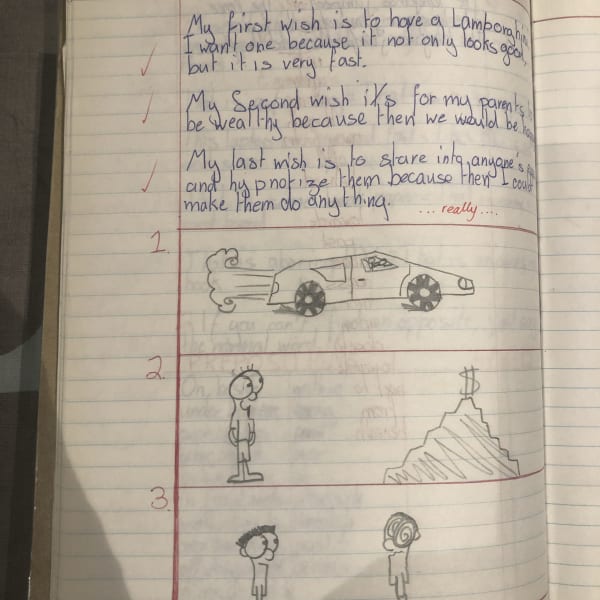 My first wish is to have a Lamborghini
I want one because it not only looks good,
but it is very fast.
My Second wish it's for my parents
be wealthy because then we would be
My last wish is to stare into anyone's
and hypnotize them because then I could
make them do anything.
...really....
1.
2.
$
3.